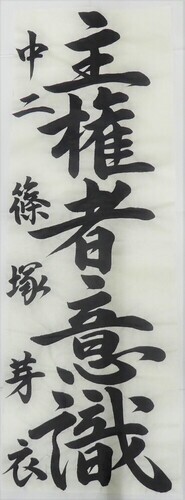 主権者意識
中二 篠塚芽衣